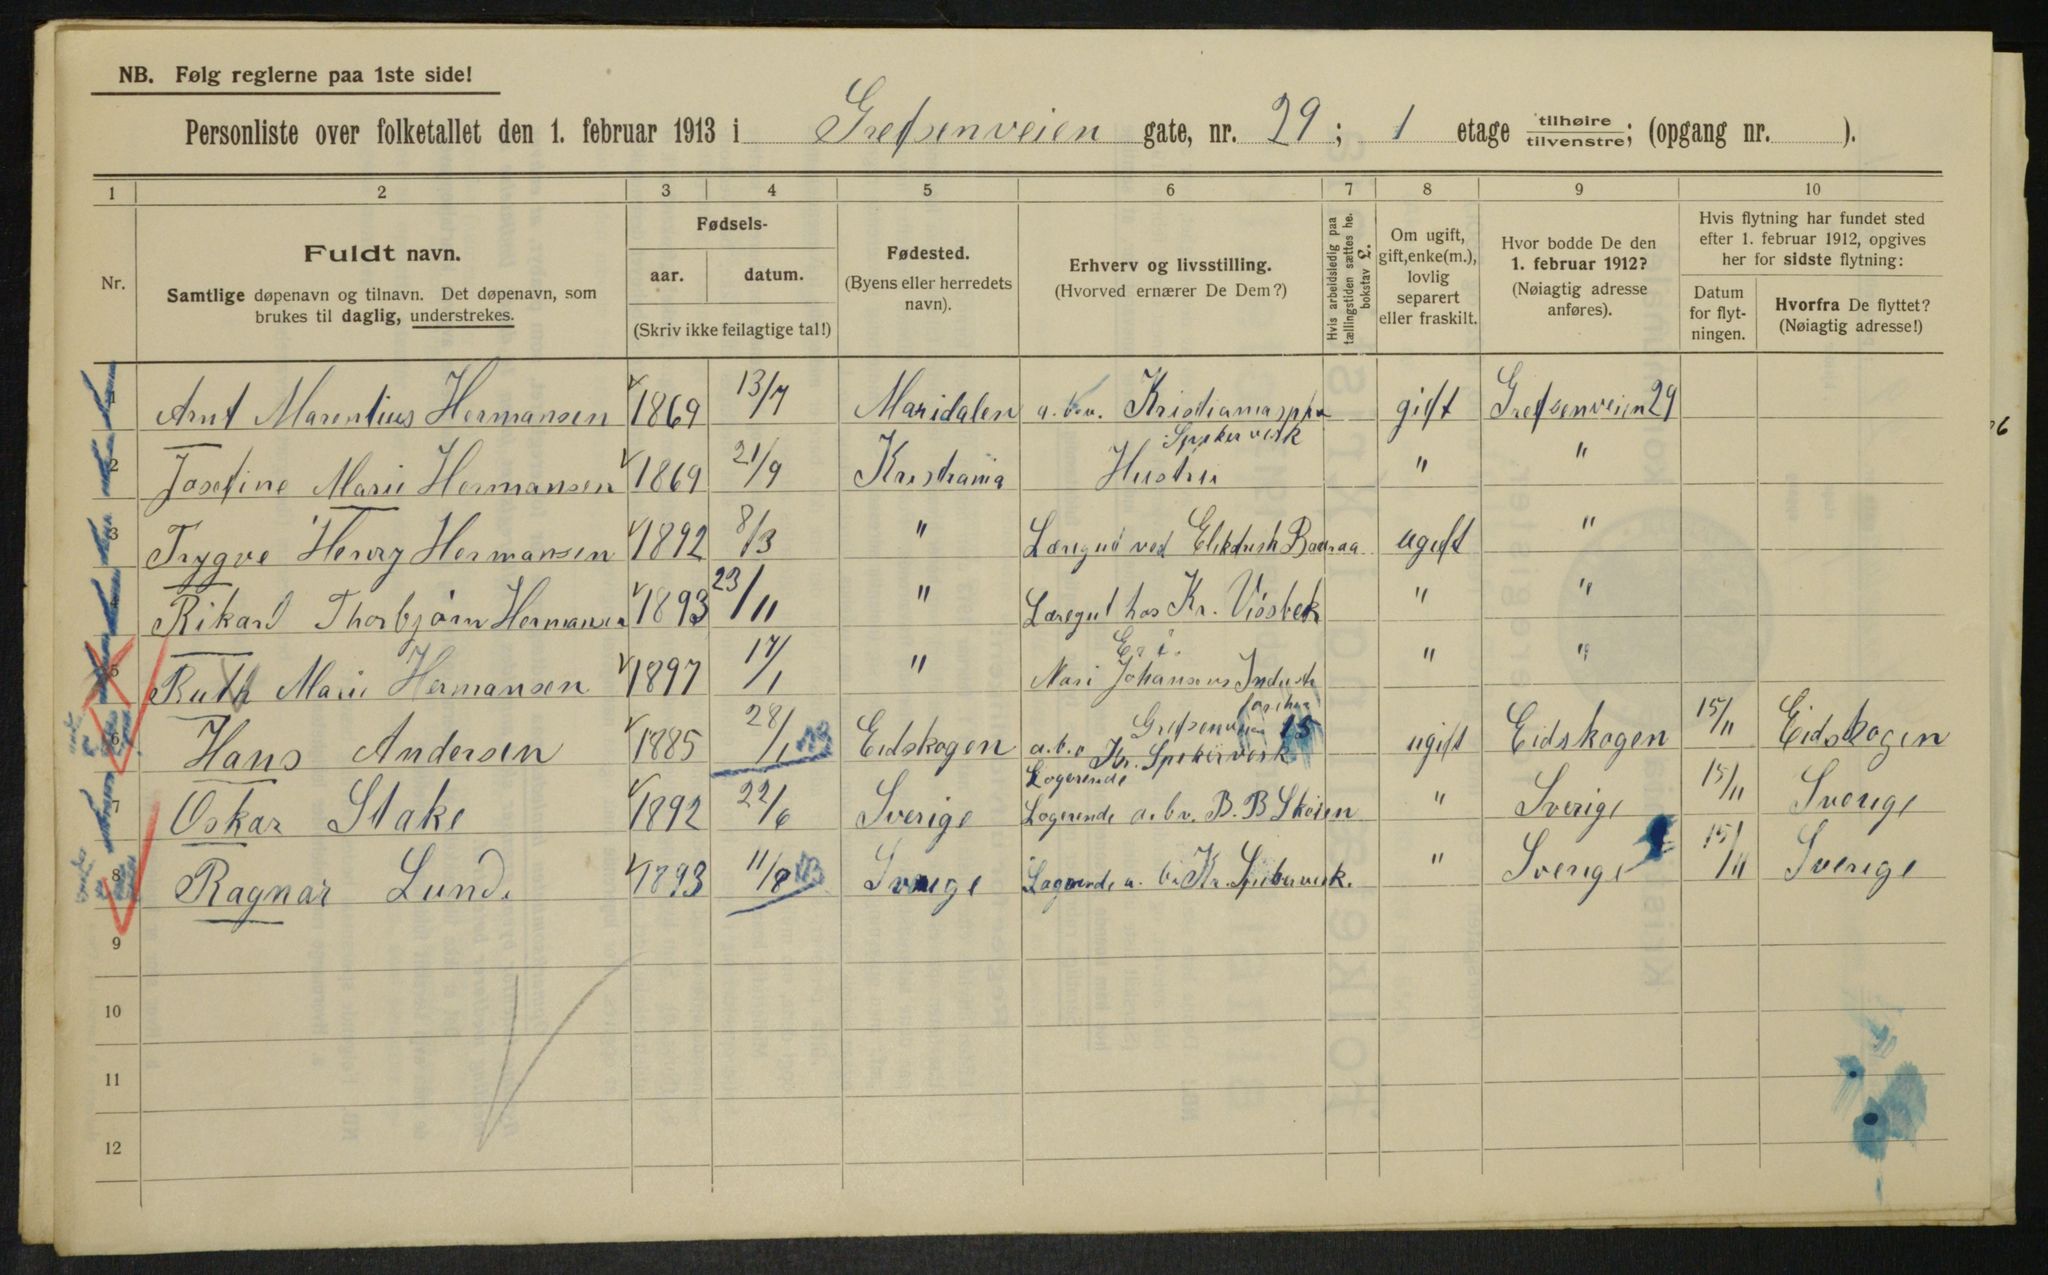 NB. Følg reglerne paa 1ste side!
Personliste over folketallet den 1. februar 1913 i Grefsenveien gate, nr. 29; 1 etage tilhøire/tilvenstre; (opgang nr. ).
1 2 3 4 5 6 7 8 9 10
Nr.
Fuldt navn.
Samtlige døpenavn og tilnavn. Det døpenavn, som
brukes til daglig, understrekes.
Fødsels-
aar. datum.
(Skriv ikke feilagtige tal!)
Fødested.
(Byens eller herredets
navn).
Erhverv og livsstilling.
(Hvorved ernærer De Dem?)
Hvis arbeidsledig paa
tællingstiden sættes he.
bokstav L.
Om ugift,
gift, enke(m.),
lovlig
separert
eller fraskilt.
Hvor bodde De den
1. februar 1912?
(Nøiagtig adresse
anføres).
Hvis flytning har fundet sted
efter 1. februar 1912, opgives
her for sidste flytning:
Datum
for flyt-
ningen.
Hvorfra De flyttet?
(Nøiagtig adresse!)
1 Arnt Marentius Hermansen 1869 13/7 Maridalen a.b.v. Kristiania
Spikerverk gift Grefsenveien 29
2 Josefine Marie Hermansen 1869 21/9 Kristiania Hustru " "
3 Trygve Henry Hermansen 1892 8/3 " Læregut ved Elektrisk ugift "
4 Rikard Thorbjørn Hermansen 1893 23/11 " Læregut hos Kr. Visbek " "
5 Ruth Marie Hermansen 1897 17/1 " Johansens " "
Grefsenveien 15
6 Hans Andersen 1885 28/1 Eidskogen a.b.v Kr. Spikerverk ugift Eidskogen 15/11 Eidskogen
Logerende
7 Oskar Stake 1892 22/6 Sverige Logerende a.b.v. B. B Skøien " Sverige 15/11 Sverige
8 Ragnar Lund. 1893 11/8 Sverige Logerende a. b.v Kr. Spikerverk. " Sverige 15/11 Sverige
9
10
11
12